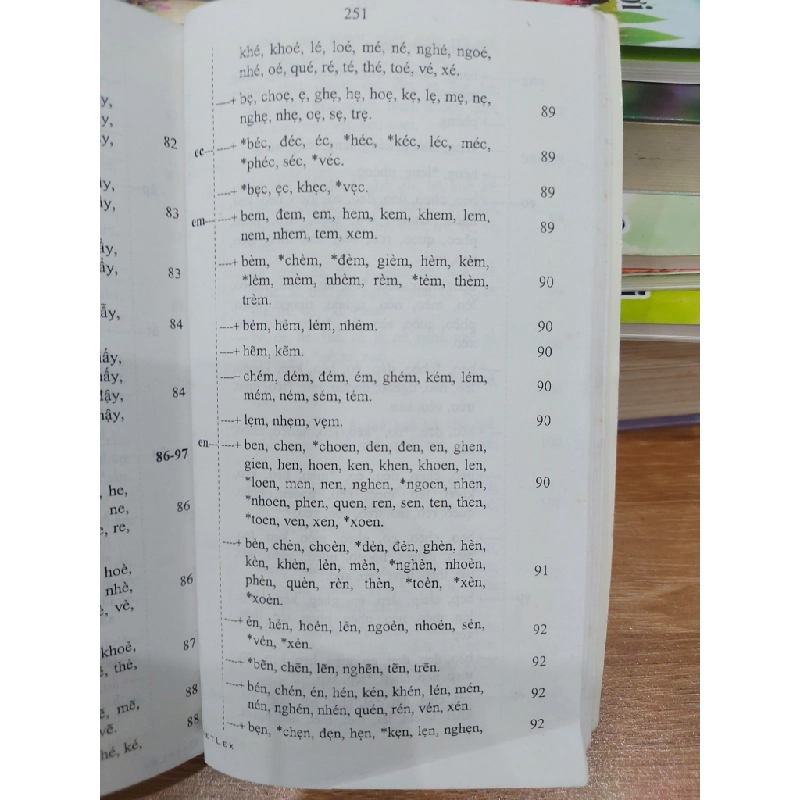 251
khé, khoé, lé, loé, mé, né, nghé, ngoé,
nhé, oé, qué, ré, té, thé, toé, vé, xé.
bẹ, choẹ, ẹ, ghẹ, hẹ, hoẹ, kẹ, lẹ, mẹ, nẹ,
nghẹ, nhẹ, oẹ, sẹ, trẹ. 89
ec
*béc, đéc, éc, *héc, *kéc, léc, méc,
*phéc, séc, *véc. 89
*bẹc, ẹc, khẹc, *vẹc. 89
em
bem, đem, em, hem, kem, khem, lem,
nem, nhem, tem, xem. 89
bèm, *chèm, *đèm, gièm, hèm, kèm,
*lèm, mèm, nhèm, rèm, *tèm, thèm,
trèm. 90
bẻm, hẻm, lẻm, nhẻm. 90
hẽm, kẽm. 90
chém, dém, đém, ém, ghém, kém, lém,
mém, ném, sém, tém. 90
lẹm, nhẹm, vẹm. 90
en
ben, chen, *choen, den, đen, en, ghen,
gien, hen, hoen, ken, khen, khoen, len,
*loen, men, nen, nghen, *ngoen, nhen,
*nhoen, phen, quen, ren, sen, ten, then,
*toen, ven, xen, *xoen. 90
bèn, chèn, choèn, *dèn, đèn, ghèn, hèn,
kèn, khèn, lèn, mèn, *nghèn, nhoèn,
phèn, quèn, rèn, thèn, *toèn, *xèn,
*xoèn. 91
ẻn, hẻn, hoẻn, lẻn, ngoẻn, nhoẻn, sẻn,
*vẻn, *xẻn. 92
*bẽn, chẽn, lẽn, nghẽn, tẽn, trẽn. 92
bén, chén, én, hén, kén, khén, lén, mén,
nén, nghén, nhén, quén, rén, vén, xén. 92
bẹn, *chẹn, đẹn, hẹn, *kẹn, lẹn, nghẹn, 92
82
83
83
84
84
86-97
he,
ne,
re,
86
hoẻ,
nhẻ,
vẻ,
86
khoẻ,
thẻ,
87
88
mẽ,
vẽ.
88
hé, ké,